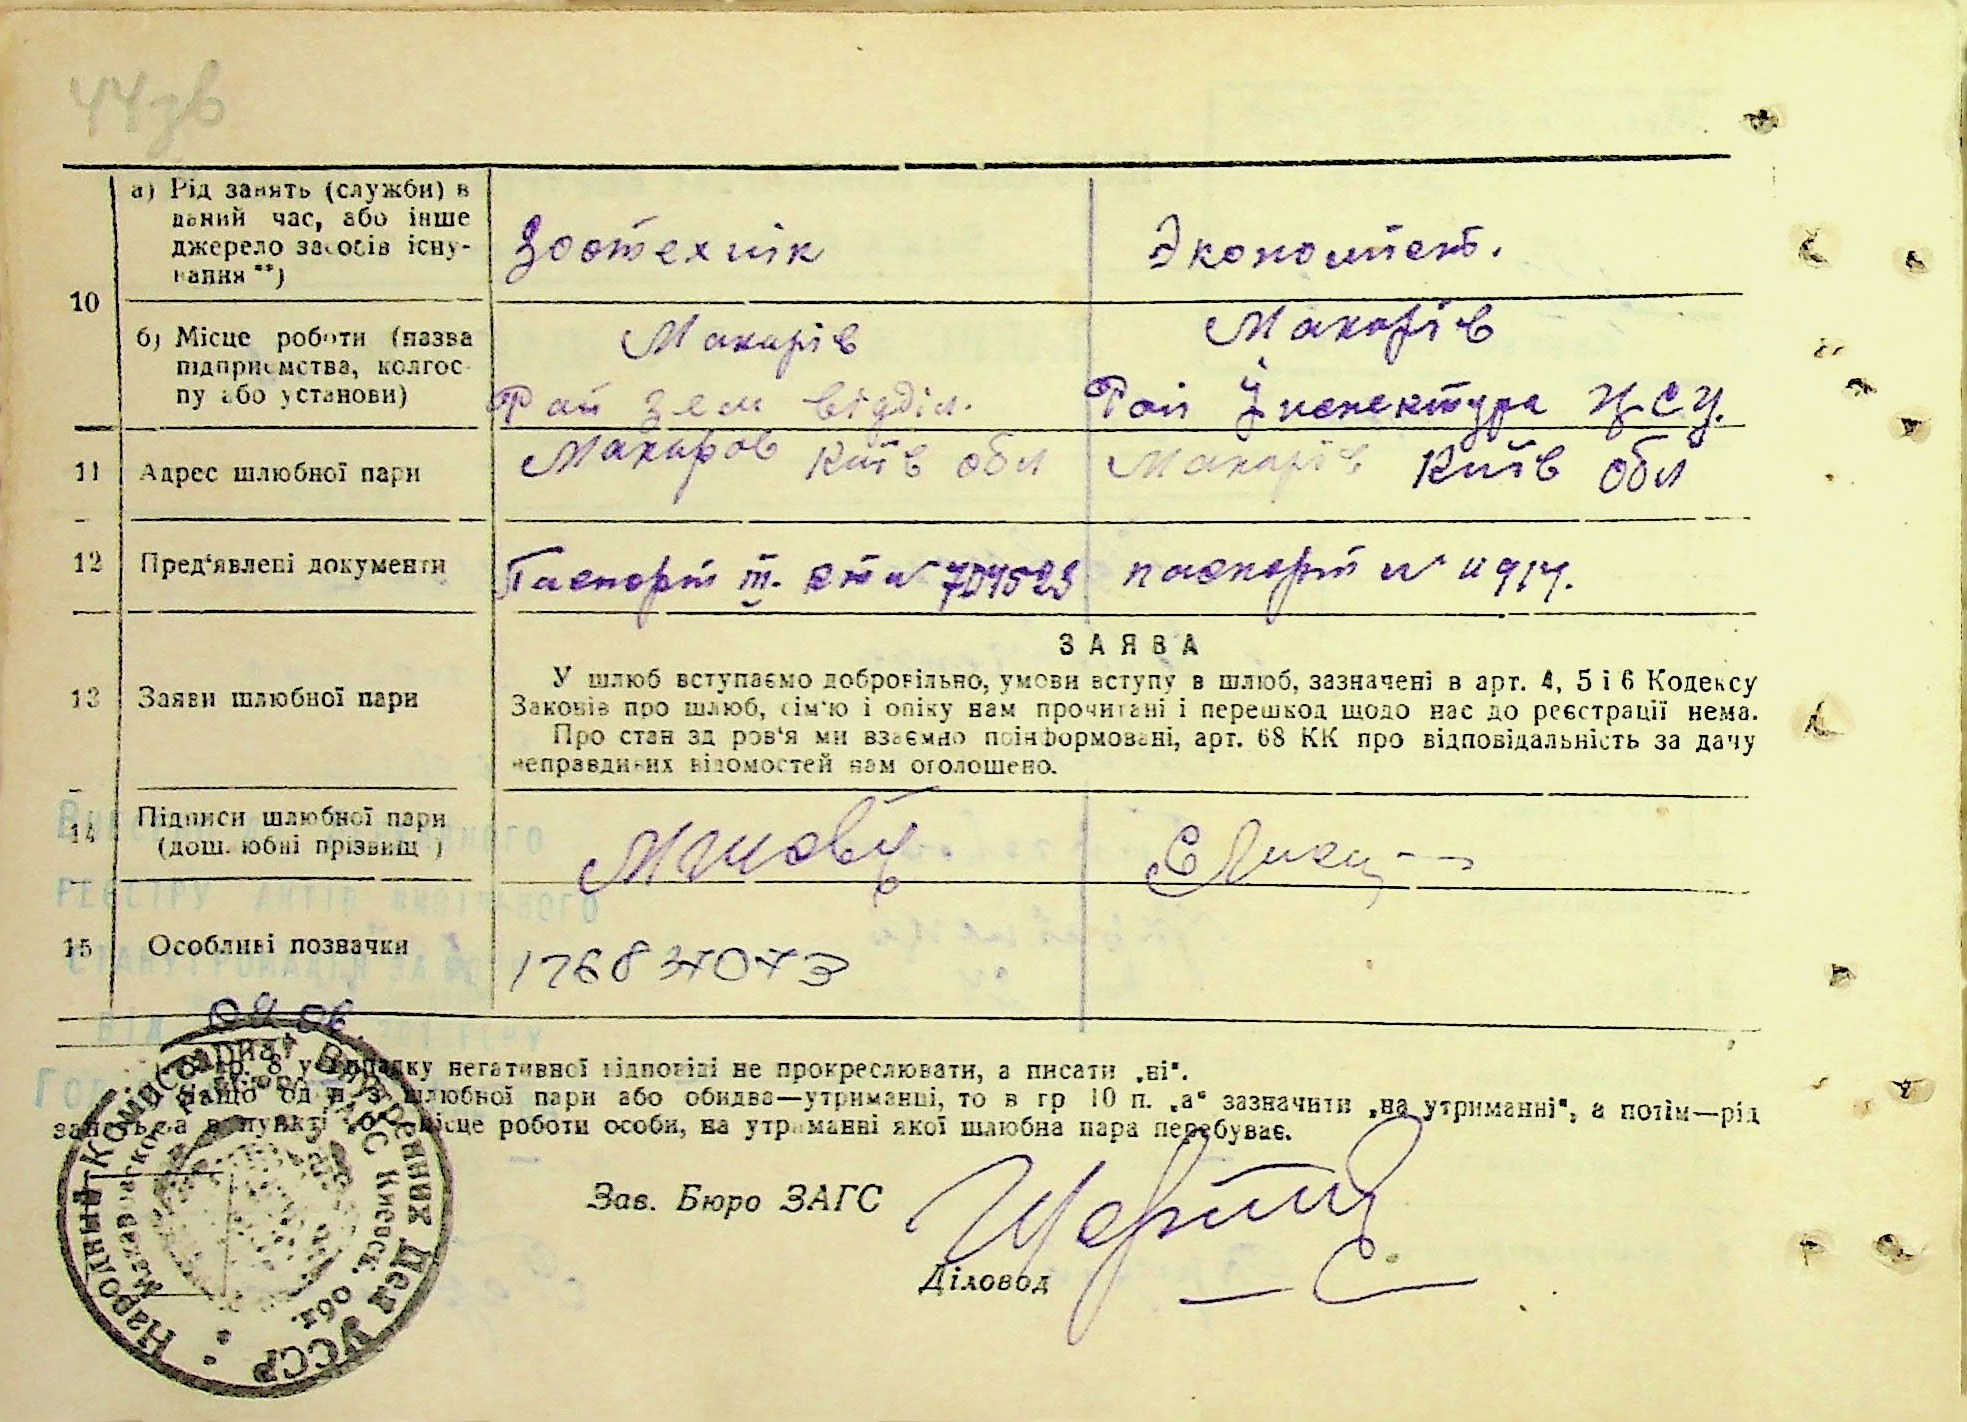 44зв
а) Рід занять (служби) в
даний час, або інше
джерело засобів існу-
вання **)
Зоотехнік
Экономист.
10
б) Місце роботи (назва
підприємства, колгос-
пу або установи)
Макарів
Рай зем відділ.
Макарів
Рай Інспектура ЦСУ.
11 Адрес шлюбної пари
Макаров Київ обл
Макарів Київ обл
12 Пред'явлені документи
Паспорт
паспорт №
ЗАЯВА
13 Заяви шлюбної пари
У шлюб вступаємо добровільно, умови вступу в шлюб, зазначені в арт. 4, 5 і 6 Кодексу
Законів про шлюб, сім'ю і опіку нам прочитані і перешкод щодо нас до реєстрації нема.
Про стан здоров'я ми взаємно поінформовані, арт. 68 КК про відповідальність за дачу
неправдивих відомостей нам оголошено.
14 Підписи шлюбної пари
(дошлюбні прізвищ)
15 Особливі позначки
176837073
гр. 8 у випадку негативної відповіді не прокреслювати, а писати „ні“.
шлюбної пари або обидва—утриманці, то в гр 10 п. „а“ зазначити „на утриманні“, а потім—рід
занять, а в пункті „б“ місце роботи особи, на утриманні якої шлюбна пара перебуває.
Зав. Бюро ЗАГС
Діловод
Народный Комиссариат Внутренних Дел УССР
ЗАГС Киевск. обл.